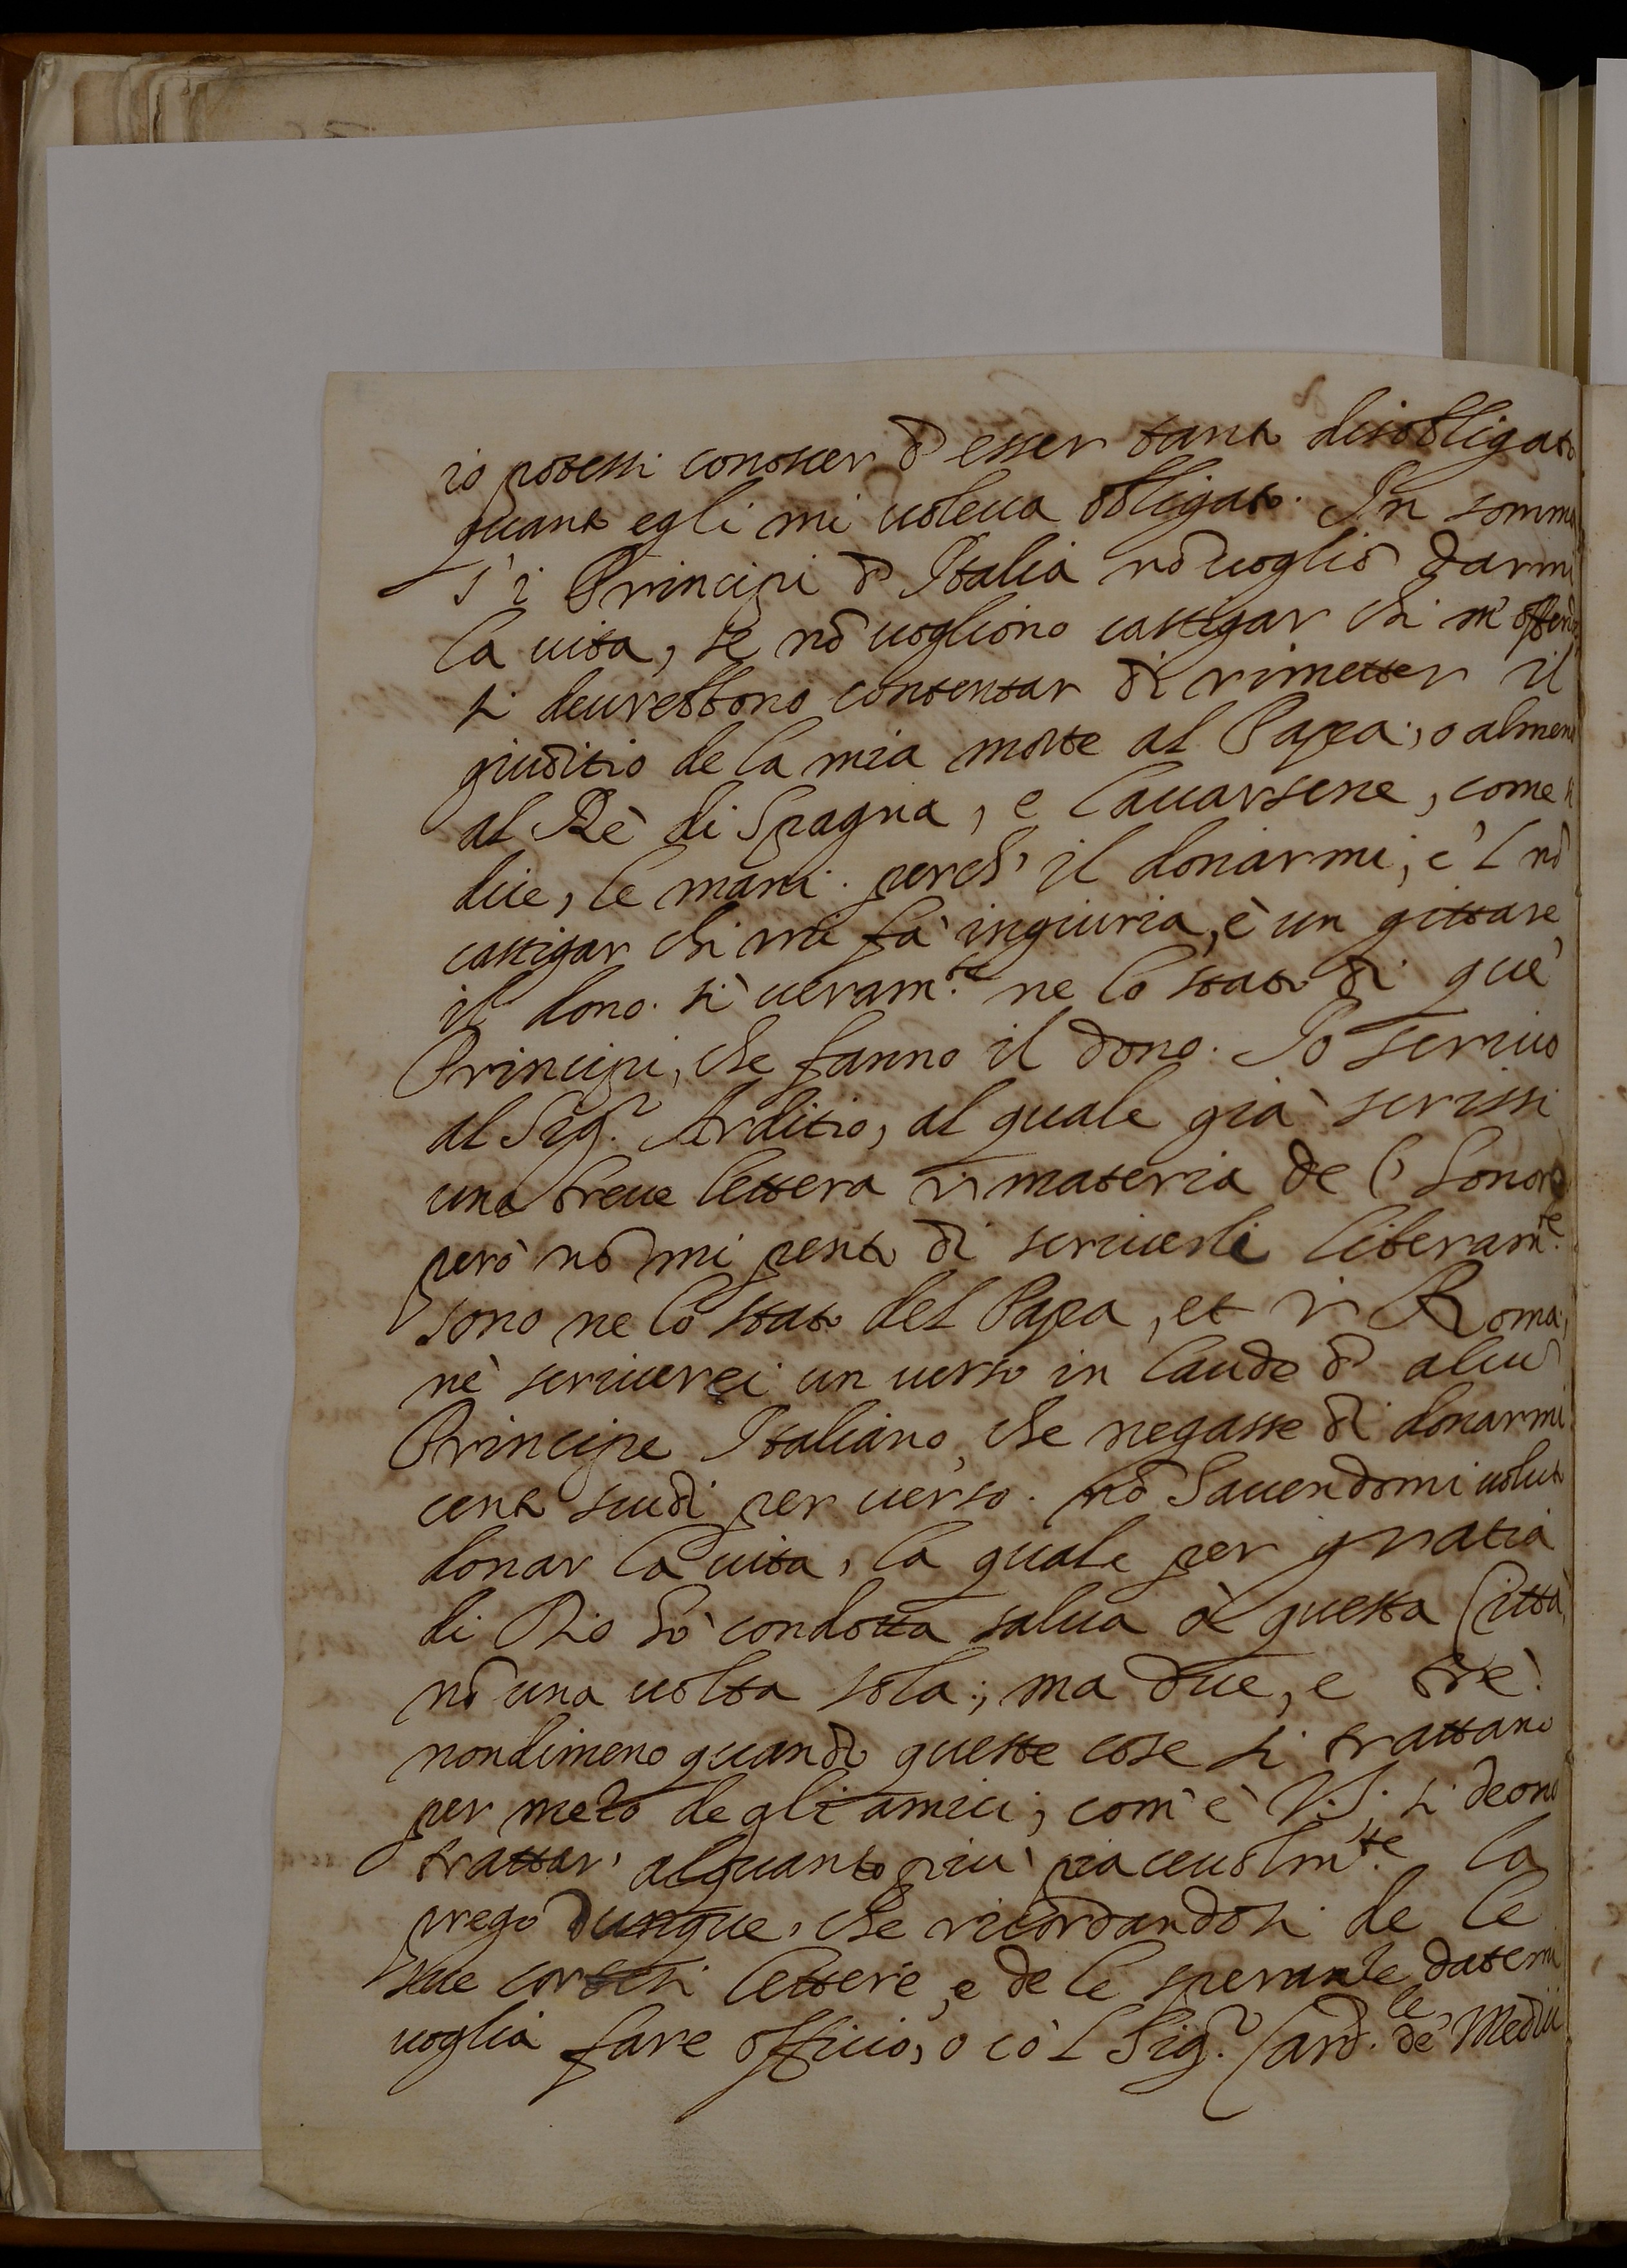 io potessi conoscer d'esser tanto disobligato
quanto egli mi voleva obligato. In somma
s'i Principi d'Italia nō voglio darmi
la vita, se nō vogliono castigar chi m'offende
si devrebbono contentar di rimetter il
giuditio de la mia morte al Papa; o almeno
al Rè di Spagna, e lavarsene, come si
dice, le mani. perch' il donarmi, e 'l nō
castigar chi mi fà ingiuria, è un gittare
il dono. si veram.te ne lo stato di que'
Principi, che fanno il dono. Io scrivo
al Sig.r Arditio, al quale già scrissi
una breve lettera in materia de l'honore
però nō mi pento di scriverli liberam.te
sono ne lo stato del Papa, et in Roma;
nè scriverei un verso in laude d'alcū
Principe Italiano, che negasse di donarmi
cento scudi per verso. nō havendomi voluto
donar la vita, la quale per gratia
di Dio hò condotta salva à questa Città,
nō una volta sola; ma due, e trè.
nondimeno quando queste cose si trattano
per mezo degli amici; com'è V.S. si deono
trattar' alquanto più piacevolm.te La
prego dunque, che ricordandosi de le
sue cortesi lettere, e de le speranze datemi
voglia fare officio, o cō 'l Sig.r Card.le de' Medici